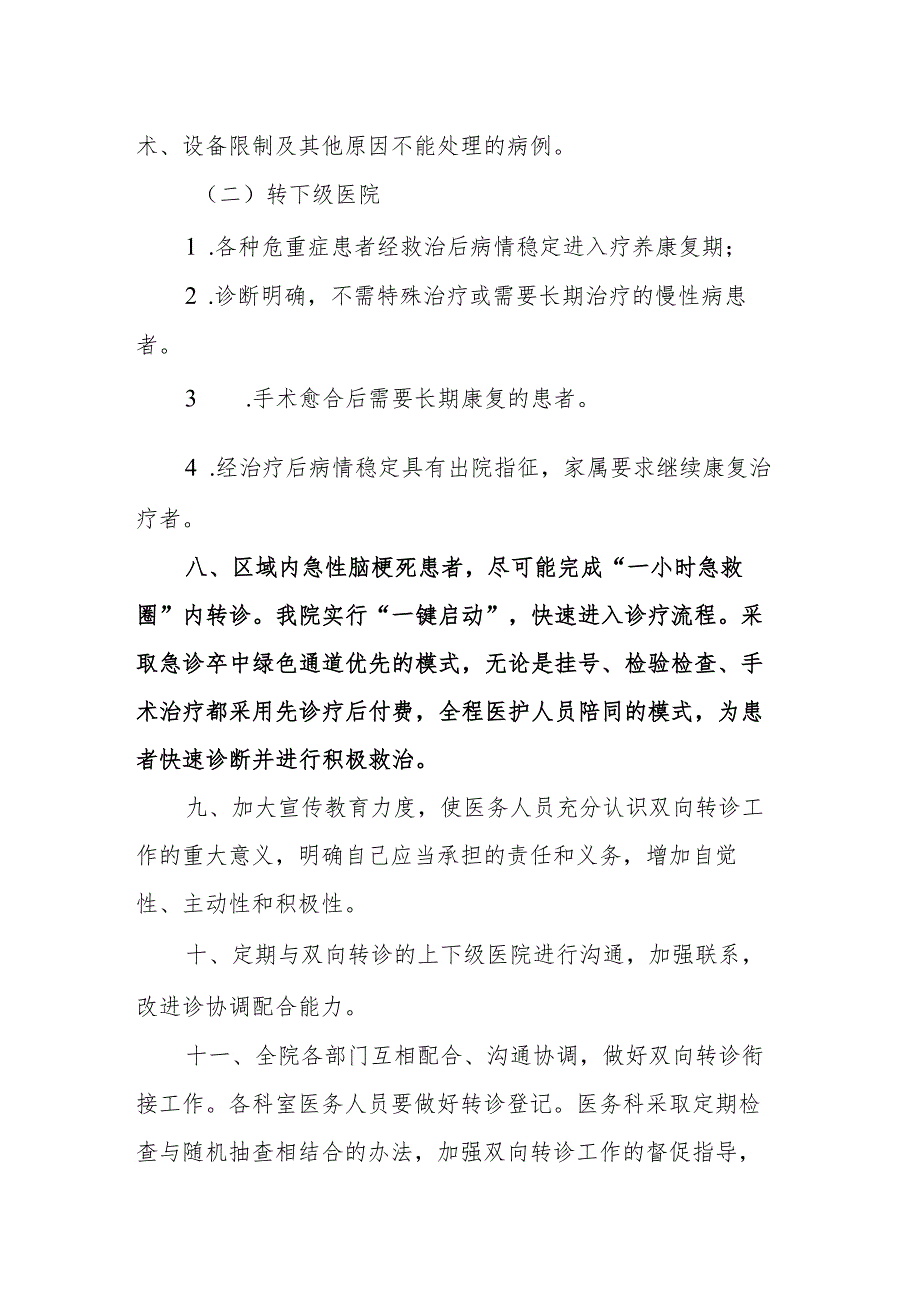 术、设备限制及其他原因不能处理的病例。
（二）转下级医院
1 .各种危重症患者经救治后病情稳定进入疗养康复期；
2 .诊断明确，不需特殊治疗或需要长期治疗的慢性病患
者。
3 .手术愈合后需要长期康复的患者。
4 .经治疗后病情稳定具有出院指征，家属要求继续康复治
疗者。
八、区域内急性脑梗死患者，尽可能完成“一小时急救
圈”内转诊。我院实行“一键启动”，快速进入诊疗流程。采
取急诊卒中绿色通道优先的模式，无论是挂号、检验检查、手
术治疗都采用先诊疗后付费，全程医护人员陪同的模式，为患
者快速诊断并进行积极救治。
九、加大宣传教育力度，使医务人员充分认识双向转诊工
作的重大意义，明确自己应当承担的责任和义务，增加自觉
性、主动性和积极性。
十、定期与双向转诊的上下级医院进行沟通，加强联系，
改进诊协调配合能力。
十一、全院各部门互相配合、沟通协调，做好双向转诊衔
接工作。各科室医务人员要做好转诊登记。医务科采取定期检
查与随机抽查相结合的办法，加强双向转诊工作的督促指导，